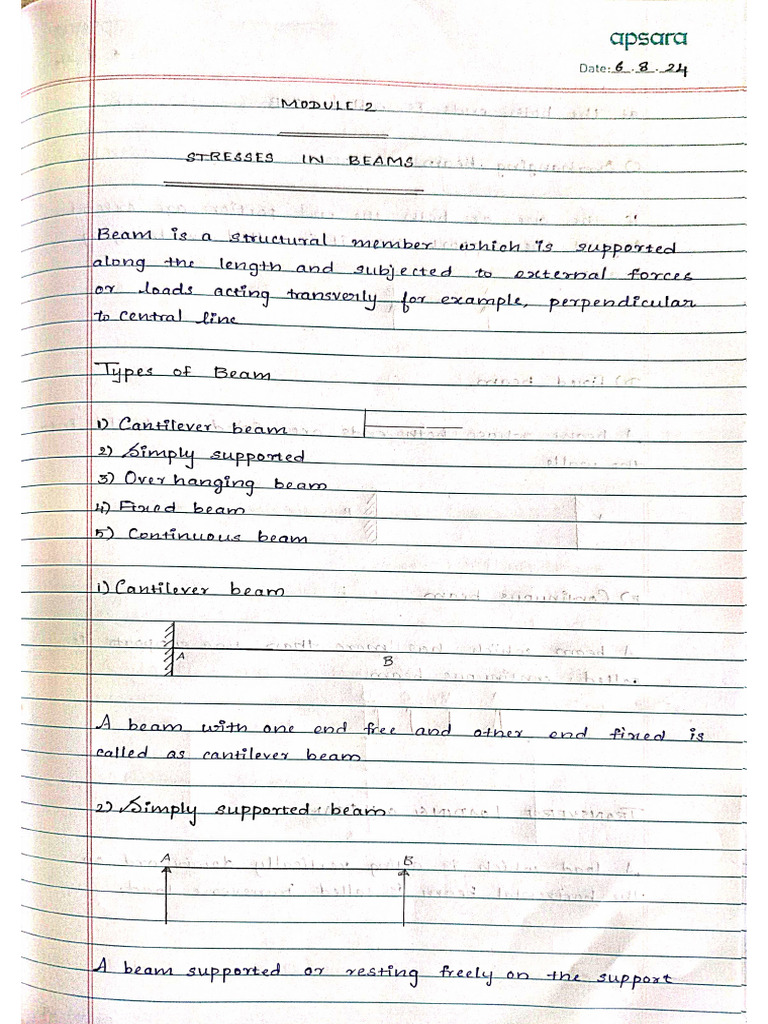 apsara
Date: 6.8.24
MODULE 2
STRESSES IN BEAMS
Beam is a structural member which is supported
along the length and subjected to external forces
or loads acting transverly, for example, perpendicular
to central line
Types of Beam
1) Cantilever beam
2) Simply supported
3) Over hanging beam
4) Fixed beam
5) Continuous beam
1) Cantilever beam
A B
A beam with one end free and other end fixed is
called as cantilever beam
2) Simply supported beam
A B
A beam supported or resting freely on the support